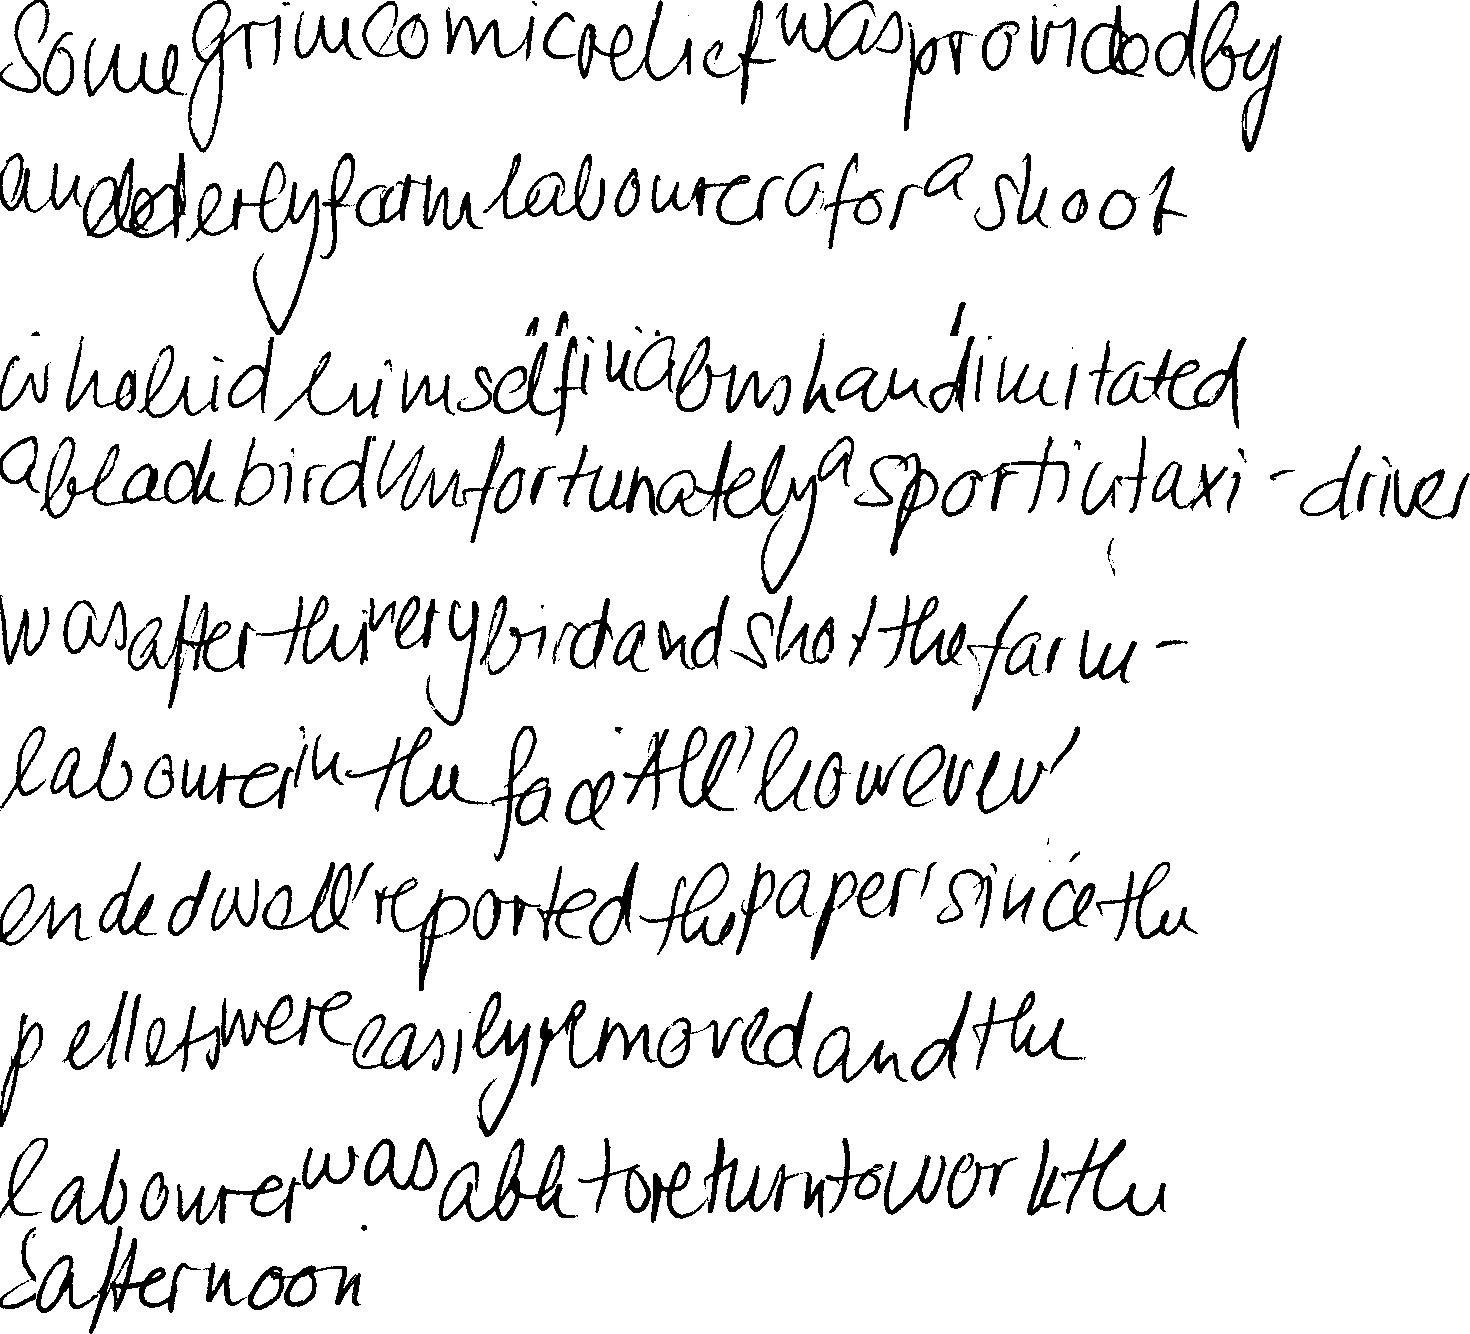 Some grim comic relief was provided by
an elderly farm labourer a for a shoot
who hid himself in a bush and imitated
a blackbird Unfortunately a sportin taxi-driver
was after this very bird and shot the farm-
labourer in the face All' however'
ended well' reported the paper' since the
pellets were easily removed and the
labourer was able to return to work the
afternoon